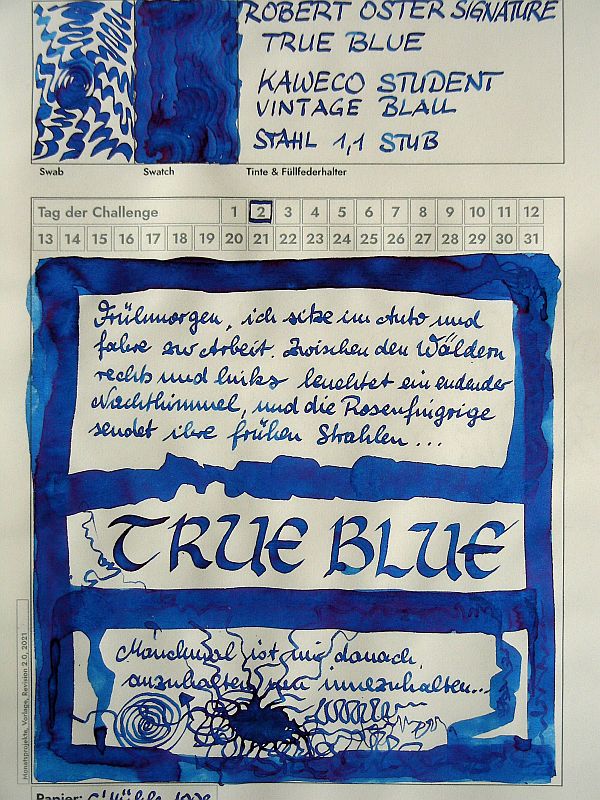 ROBERT OSTER SIGNATURE
TRUE BLUE
KAWECO STUDENT
VINTAGE BLAU
STAHL 1,1 STUB
Swab Swatch Tinte & Füllfederhalter
Tag der Challenge 1 2 3 4 5 6 7 8 9 10 11 12
13 14 15 16 17 18 19 20 21 22 23 24 25 26 27 28 29 30 31
Frühmorgen, ich sitze im Auto und
fahre zur Arbeit. Zwischen den Wäldern
rechts und links leuchtet ein endender
Nachthimmel, und die Rosenfingrige
sendet ihre frühen Strahlen ...
TRUE BLUE
Manchmal ist mir danach,
anzuhalten, um innezuhalten...
Monatsprojekte, Vorlage, Revision 2.0, 2021
Papier: